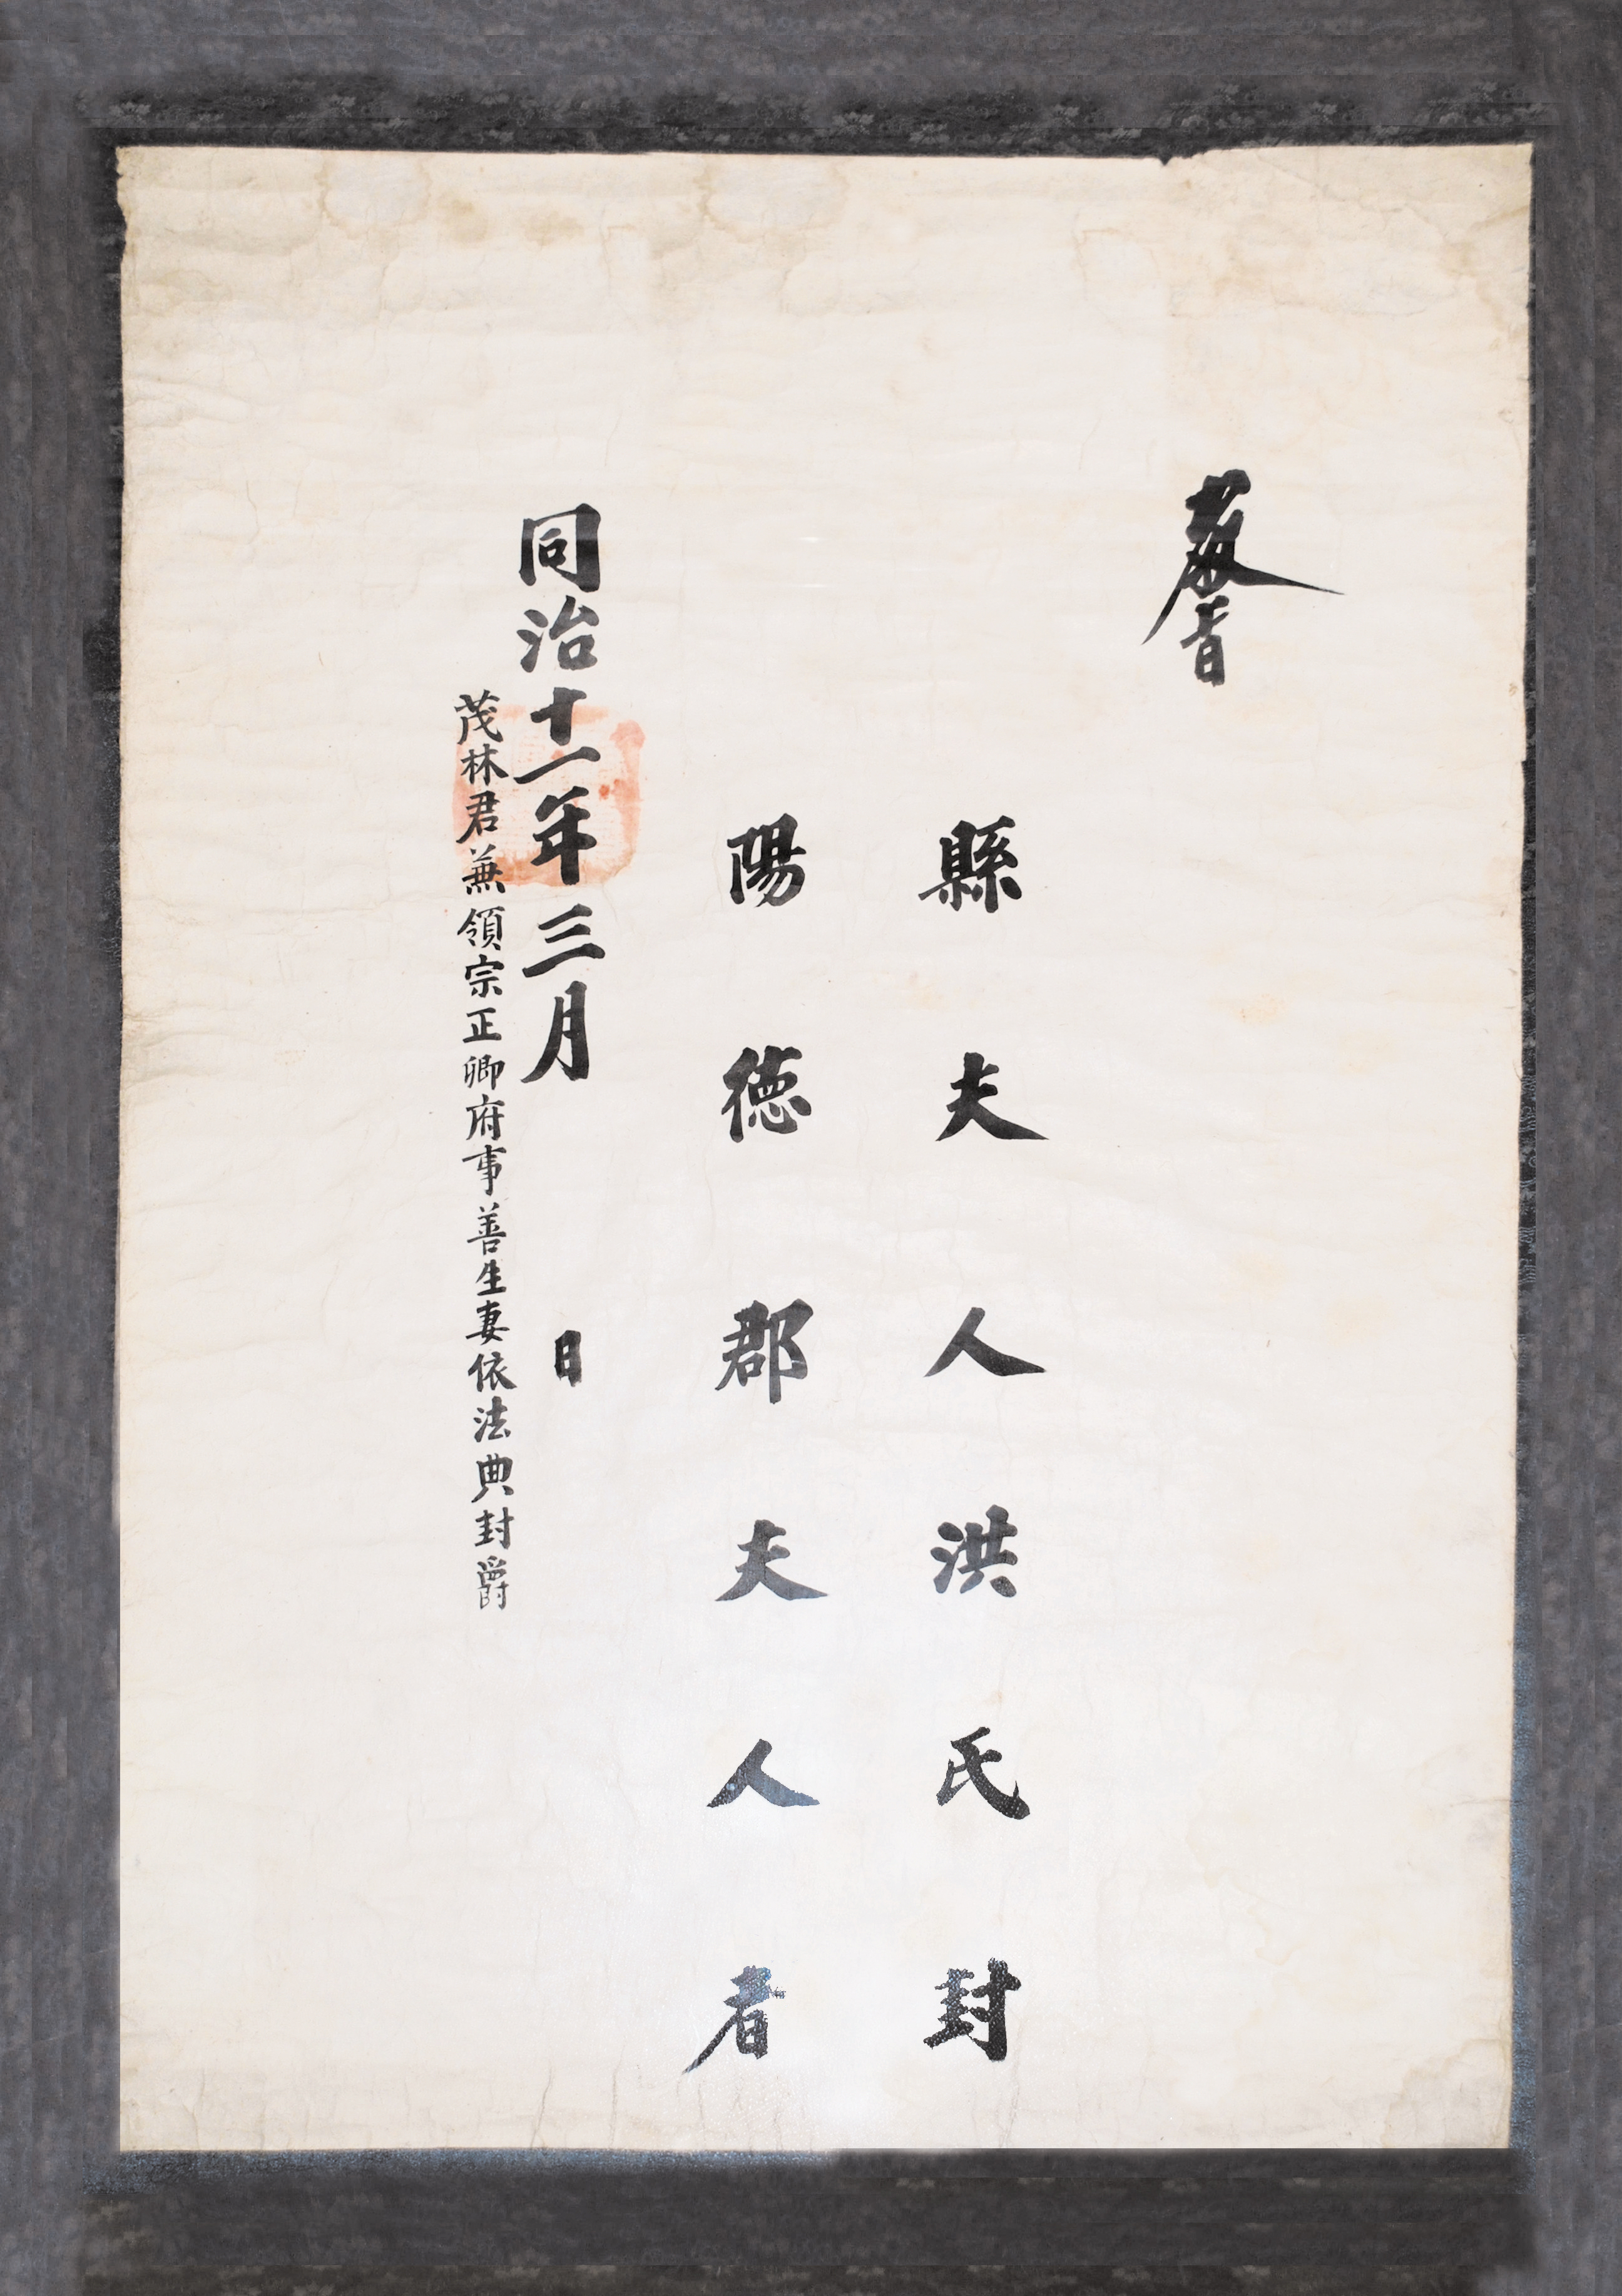 敎旨
縣夫人洪氏封
陽德郡夫人者
同治十一年三月 日
茂林君兼領宗正卿府事善生妻依法典封爵